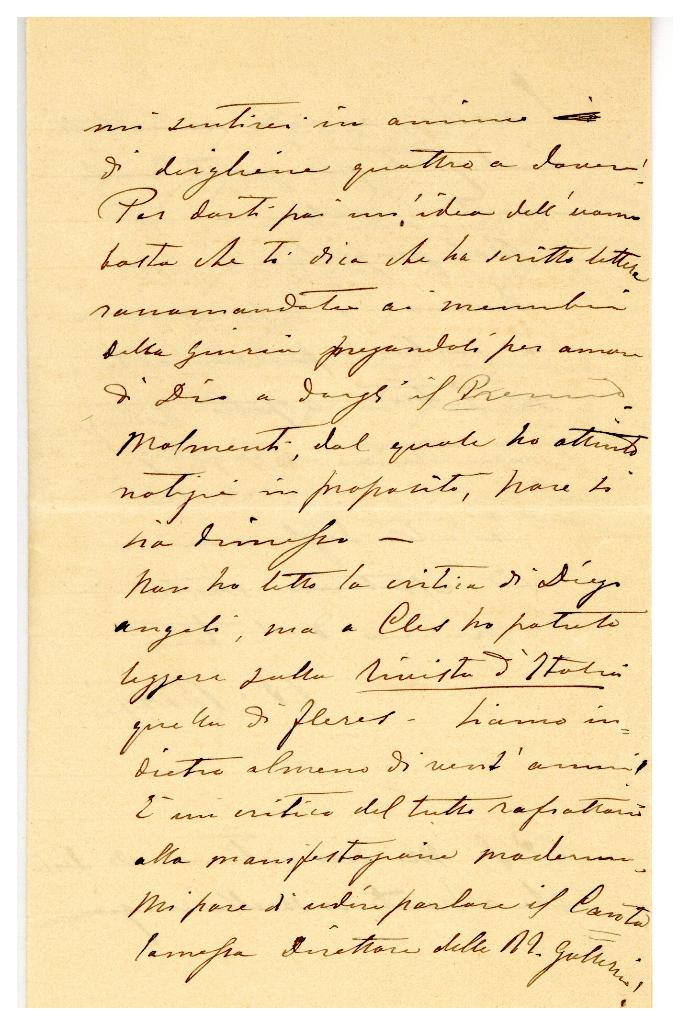 mi sentirei in animo
di dirgliene quattro a dovere!
Per darti poi un'idea dell'uomo
basta che ti dica che ha scritto lettere
raccomandate ai membri
della Giuria pregandoli per amore
di Dio a dargli il Premio.
Molmenti, dal quale ho attinto
notizie in proposito, pare si
sia dimesso —
Non ho letto la critica di Diego
Angeli, ma a Cles ho potuto
leggere sulla Rivista d'Italia
quella di Fleres - Siamo in=
dietro almeno di vent'anni!
È un critico del tutto refrattario
alla manifestazione moderna.
Mi pare di udire parlare il Cantalamessa
Direttore delle RR. Gallerie!